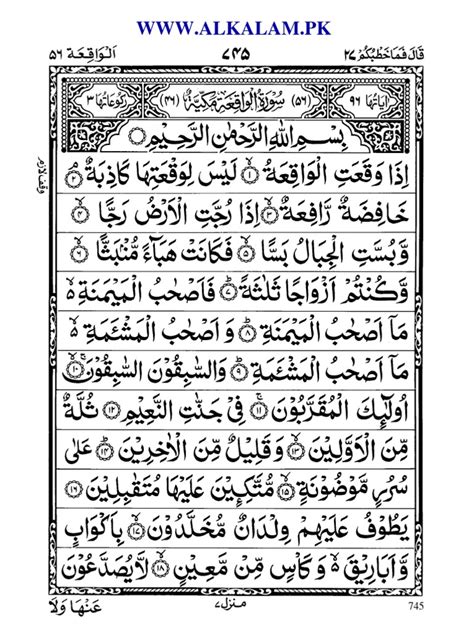 WWW.ALKALAM.PK
قَالَ فَمَا خَطْبُكُمْ ٢٧
٧٤٥
اَلْوَاقِعَة ٥٦
اٰيَاتُهَا ٩٦
(٥٦) سُوْرَةُ الْوَاقِعَةِ مَكِّيَّةٌ (٤٦)
رُكُوْعَاتُهَا ٣
بِسْمِ اللّٰهِ الرَّحْمٰنِ الرَّحِيْمِ
اِذَا وَقَعَتِ الْوَاقِعَةُ ۙ﴿١﴾ لَيْسَ لِوَقْعَتِهَا كَاذِبَةٌ ۘ﴿٢﴾
خَافِضَةٌ رَّافِعَةٌ ۙ﴿٣﴾ اِذَا رُجَّتِ الْاَرْضُ رَجًّا ۙ﴿٤﴾
وَّبُسَّتِ الْجِبَالُ بَسًّا ۙ﴿٥﴾ فَكَانَتْ هَبَآءً مُّنْۢبَثًّا ۙ﴿٦﴾
وَّكُنْتُمْ اَزْوَاجًا ثَلٰثَةً ؕ﴿٧﴾ فَاَصْحٰبُ الْمَيْمَنَةِ ۙ۬
مَاۤ اَصْحٰبُ الْمَيْمَنَةِ ؕ﴿٨﴾ وَ اَصْحٰبُ الْمَشْـَٔمَةِ ۙ۬
مَاۤ اَصْحٰبُ الْمَشْـَٔمَةِ ؕ﴿٩﴾ وَالسّٰبِقُوْنَ السّٰبِقُوْنَ ۚۙ﴿١٠﴾
اُولٰٓئِكَ الْمُقَرَّبُوْنَ ۚ﴿١١﴾ فِيْ جَنّٰتِ النَّعِيْمِ ﴿١٢﴾ ثُلَّةٌ
مِّنَ الْاَوَّلِيْنَ ۙ﴿١٣﴾ وَقَلِيْلٌ مِّنَ الْاٰخِرِيْنَ ؕ﴿١٤﴾ عَلٰى
سُرُرٍ مَّوْضُوْنَةٍ ۙ﴿١٥﴾ مُّتَّكِـِٕيْنَ عَلَيْهَا مُتَقٰبِلِيْنَ ﴿١٦﴾
يَطُوْفُ عَلَيْهِمْ وِلْدَانٌ مُّخَلَّدُوْنَ ۙ﴿١٧﴾ بِاَكْوَابٍ
وَّاَبَارِيْقَ ۙ۬ وَكَاْسٍ مِّنْ مَّعِيْنٍ ۙ﴿١٨﴾ لَّا يُصَدَّعُوْنَ
وقف لازم
عَنْهَا وَلَا
منزل ٧
745